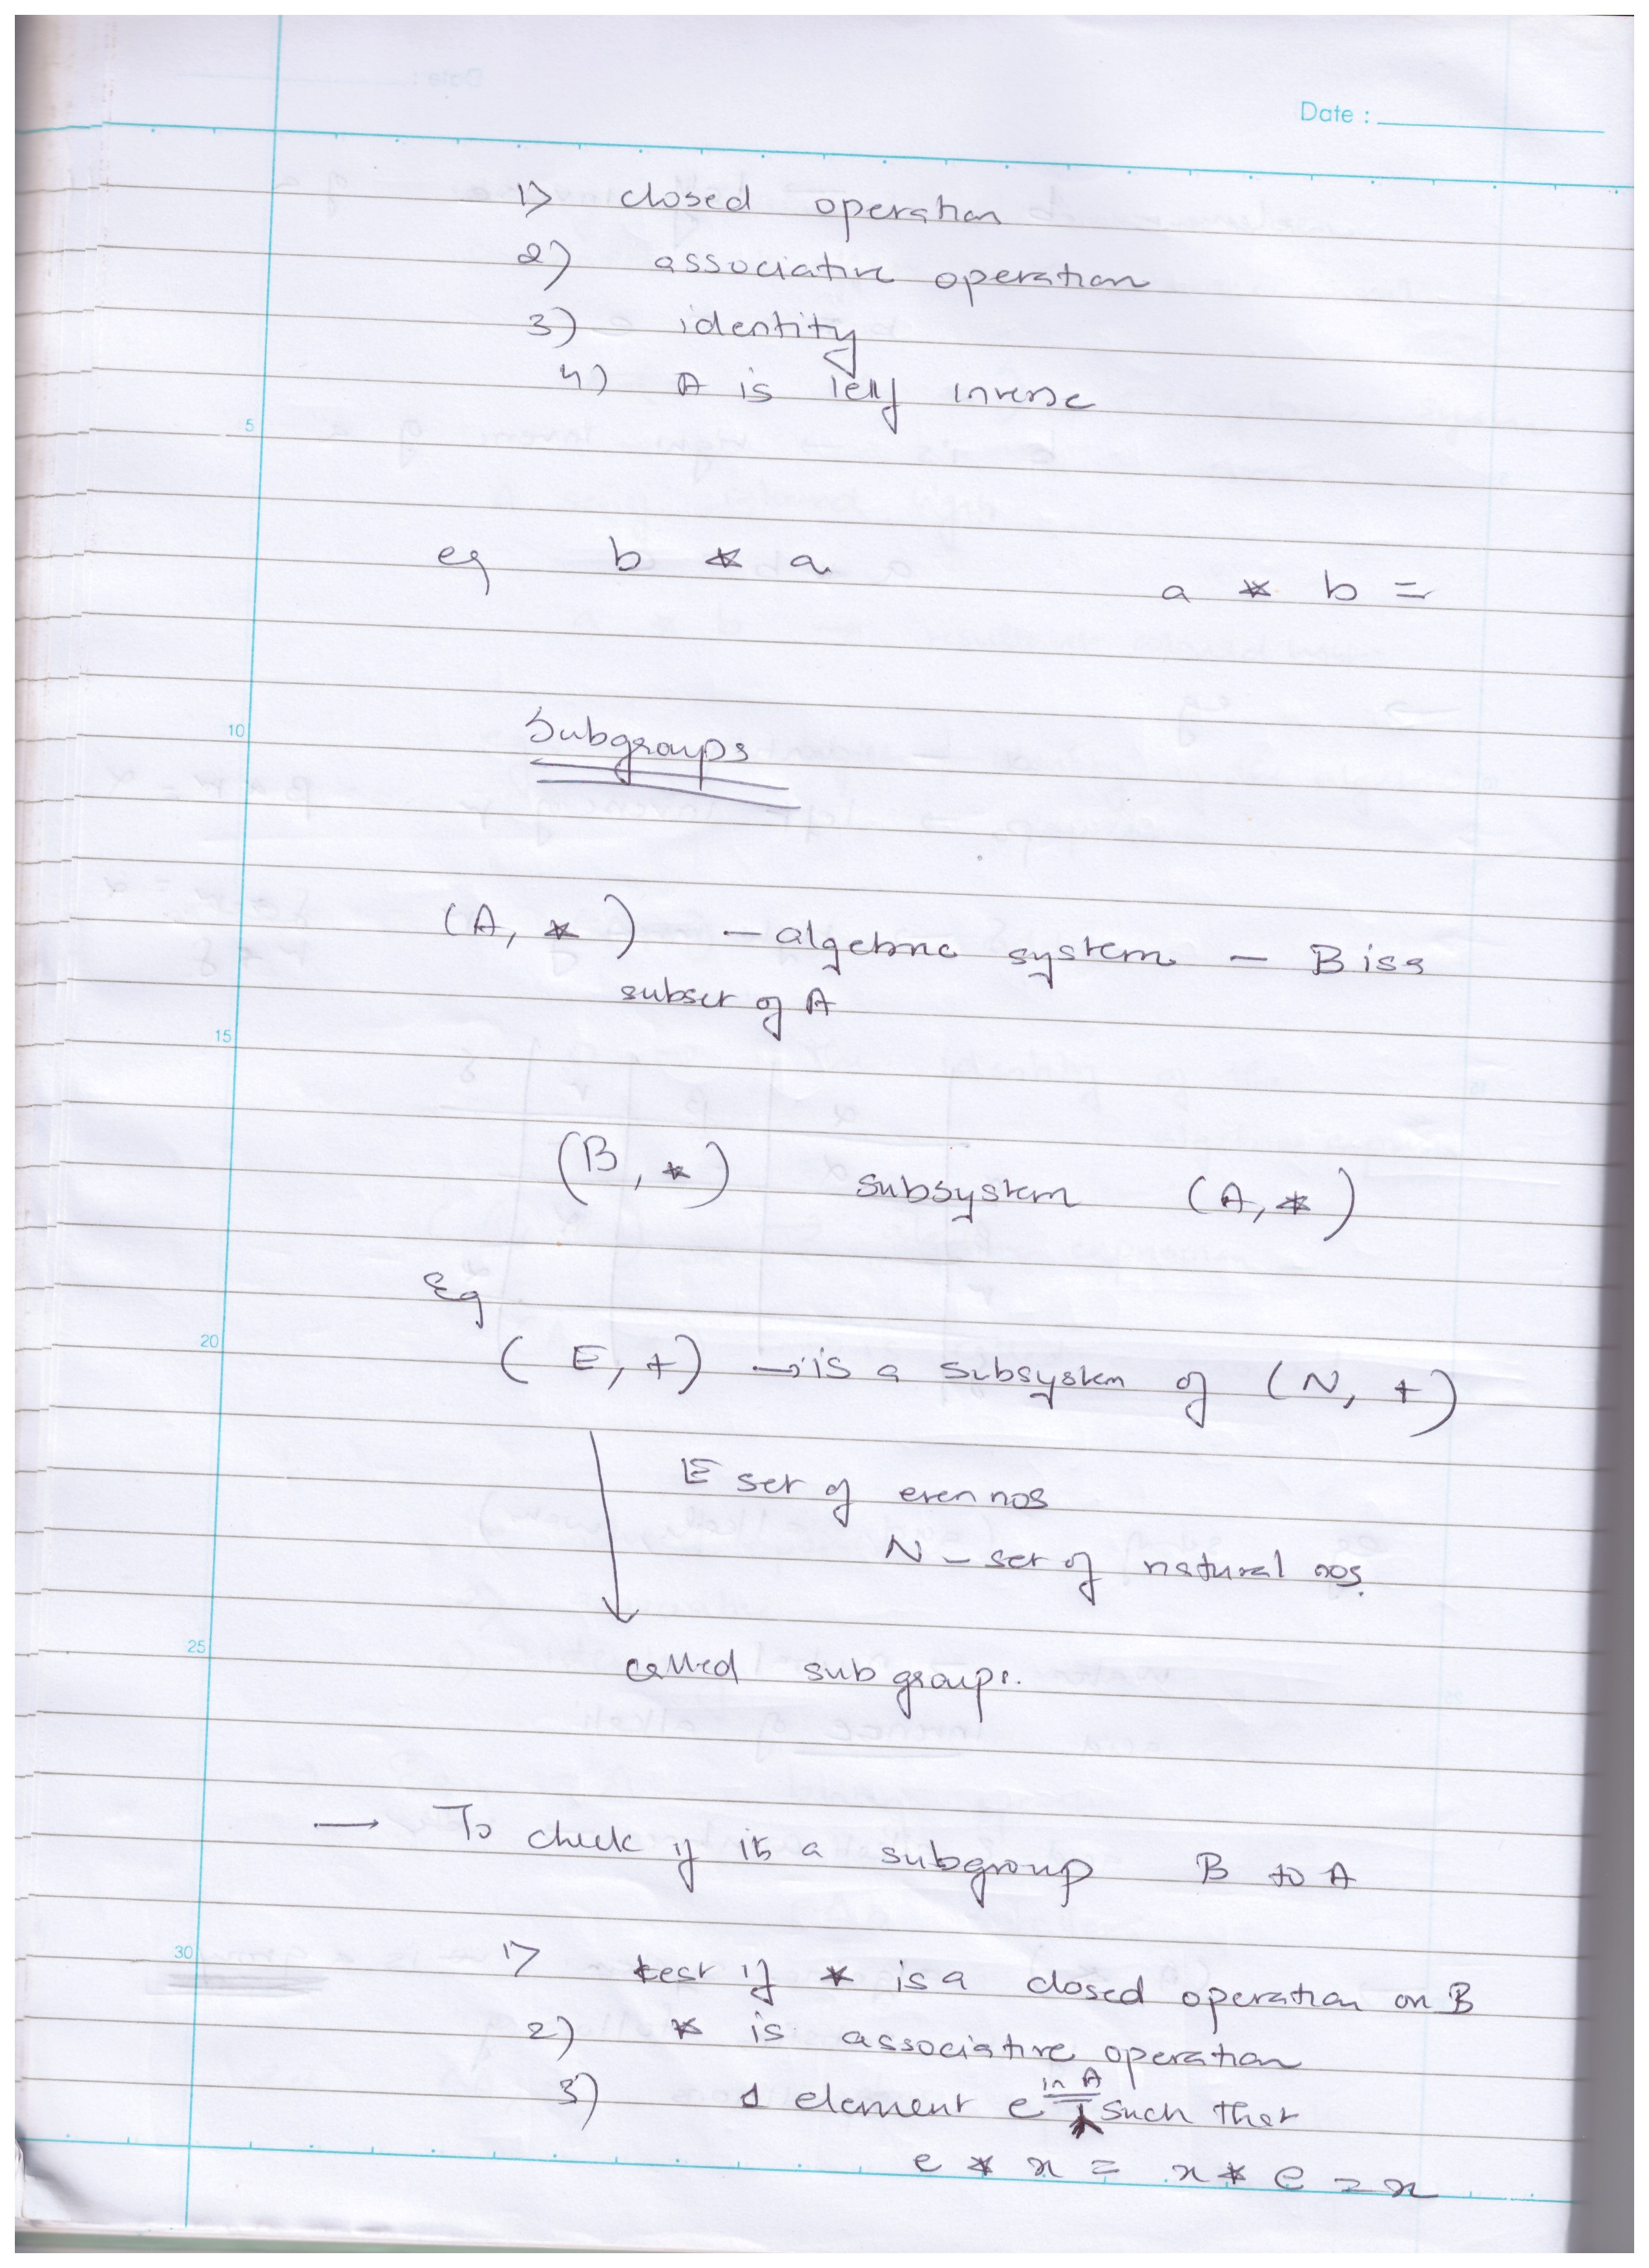 Date :
1) closed operation
2) associative operation
3) identity
4) A is left inverse
5
eg b * a a * b =
10
Subgroups
(A, *) - algebric system - B is a
subset of A
15
(B, *) subsystem (A, *)
Eg
20
(E, +) → is a subsystem of (N, +)
E set of even nos
N - set of natural nos.
25
called subgroups.
→ To check if its a subgroup B to A
30
1) test if * is a closed operation on B
2) * is associative operation
in A
3) 1 element e such that
e * x = x * e = x